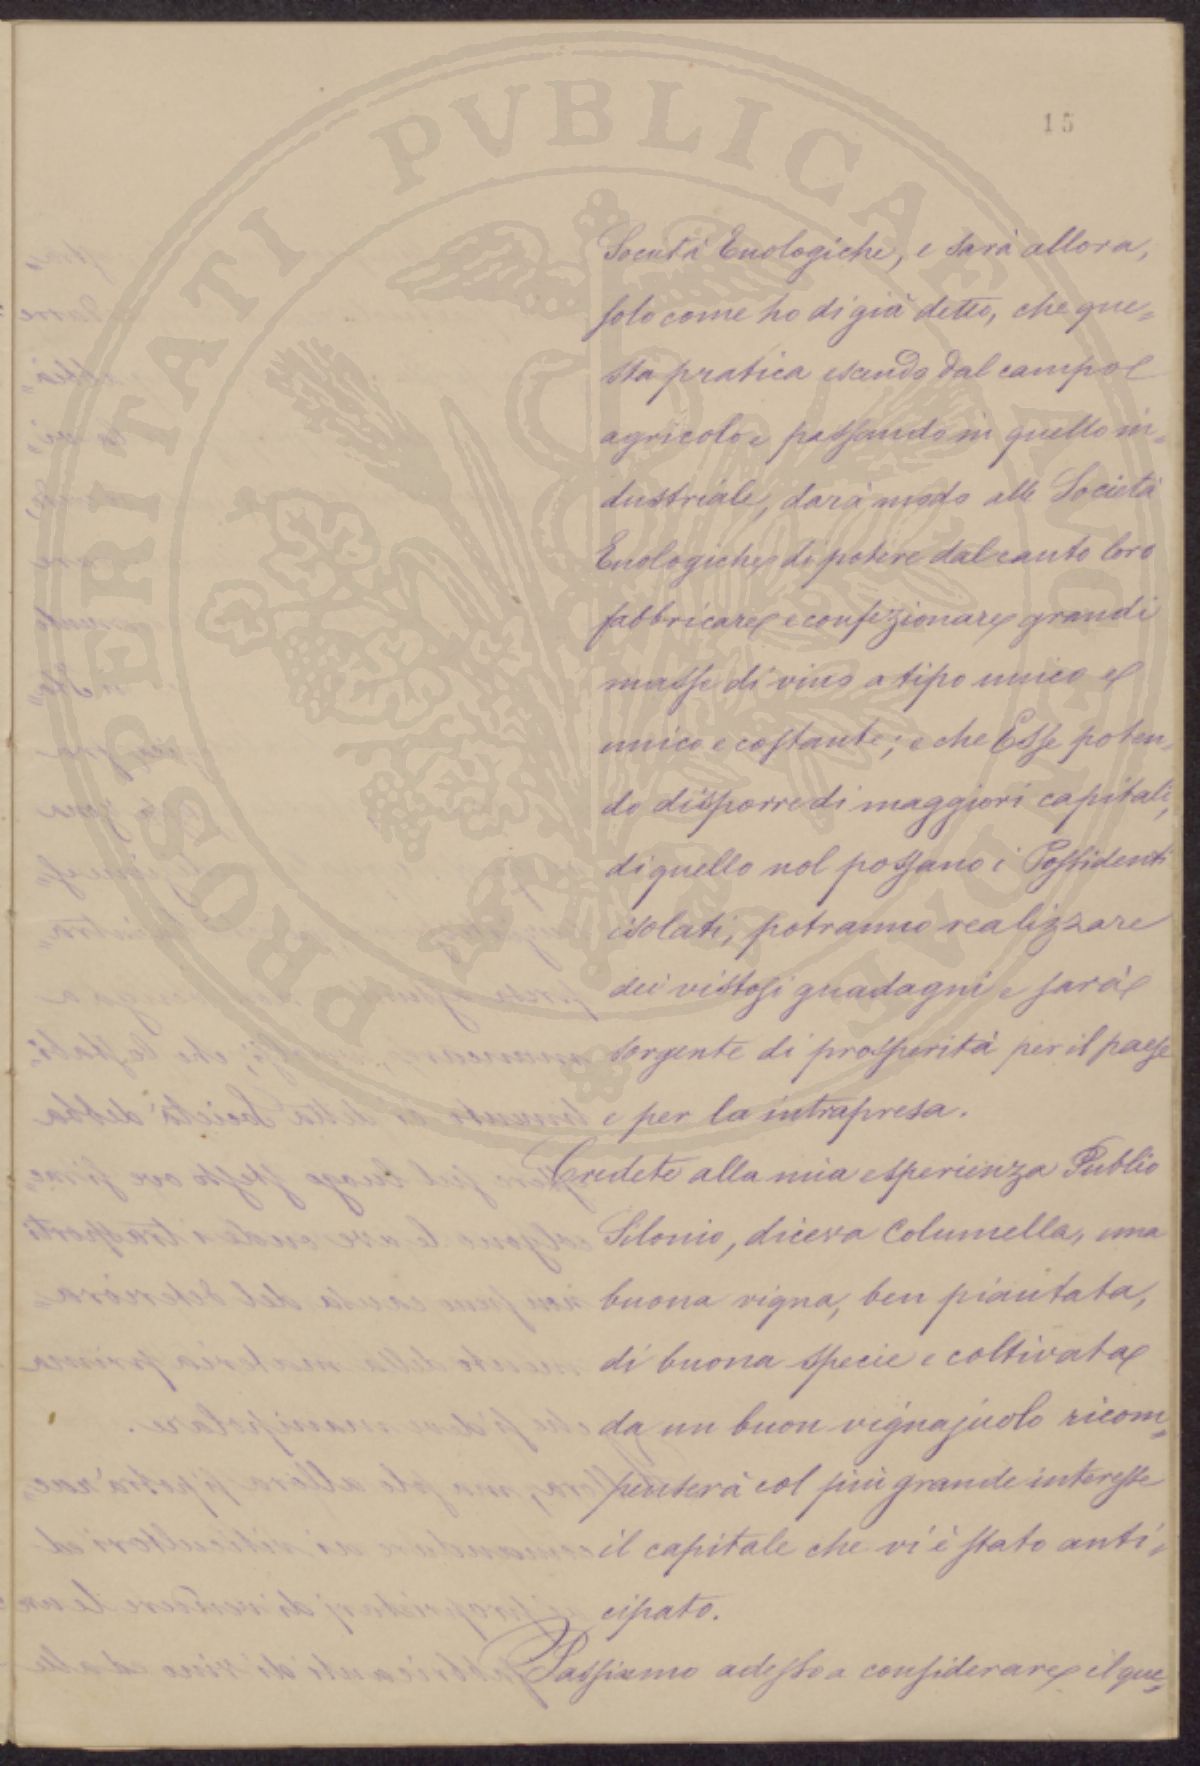 PROSPERITATI PVBLICAE AVGENDAE
15
Società Enologiche, e sarà allora,
solo come ho di già detto, che que=
sta pratica escendo dal campo
agricolo e passando in quello in=
dustriale, darà modo alle Società
Enologiche di potere dal canto loro
fabbricare e confezionare grandi
masse di vino a tipo unico e
unico e costante; e che Esse poten=
do disporre di maggiori capitali,
di quello nol possano i Possidenti
isolati, potranno realizzare
dei vistosi guadagni e sarà
sorgente di prosperità per il paese
e per la intrapresa.
Credete alla mia esperienza Publio
Silonio, diceva Columella, una
buona vigna, ben piantata,
di buona specie e coltivata
da un buon vignajuolo ricom=
penserà col più grande interesse
il capitale che vi è stato anti=
cipato.
Passiamo adesso a considerare il que=